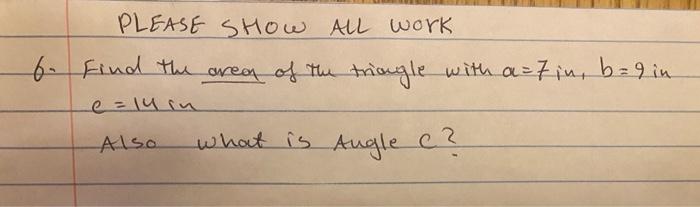 PLEASE SHOW ALL WORK
6. Find the area of the triangle with a=7in, b=9in
c=14in
Also what is Angle C?